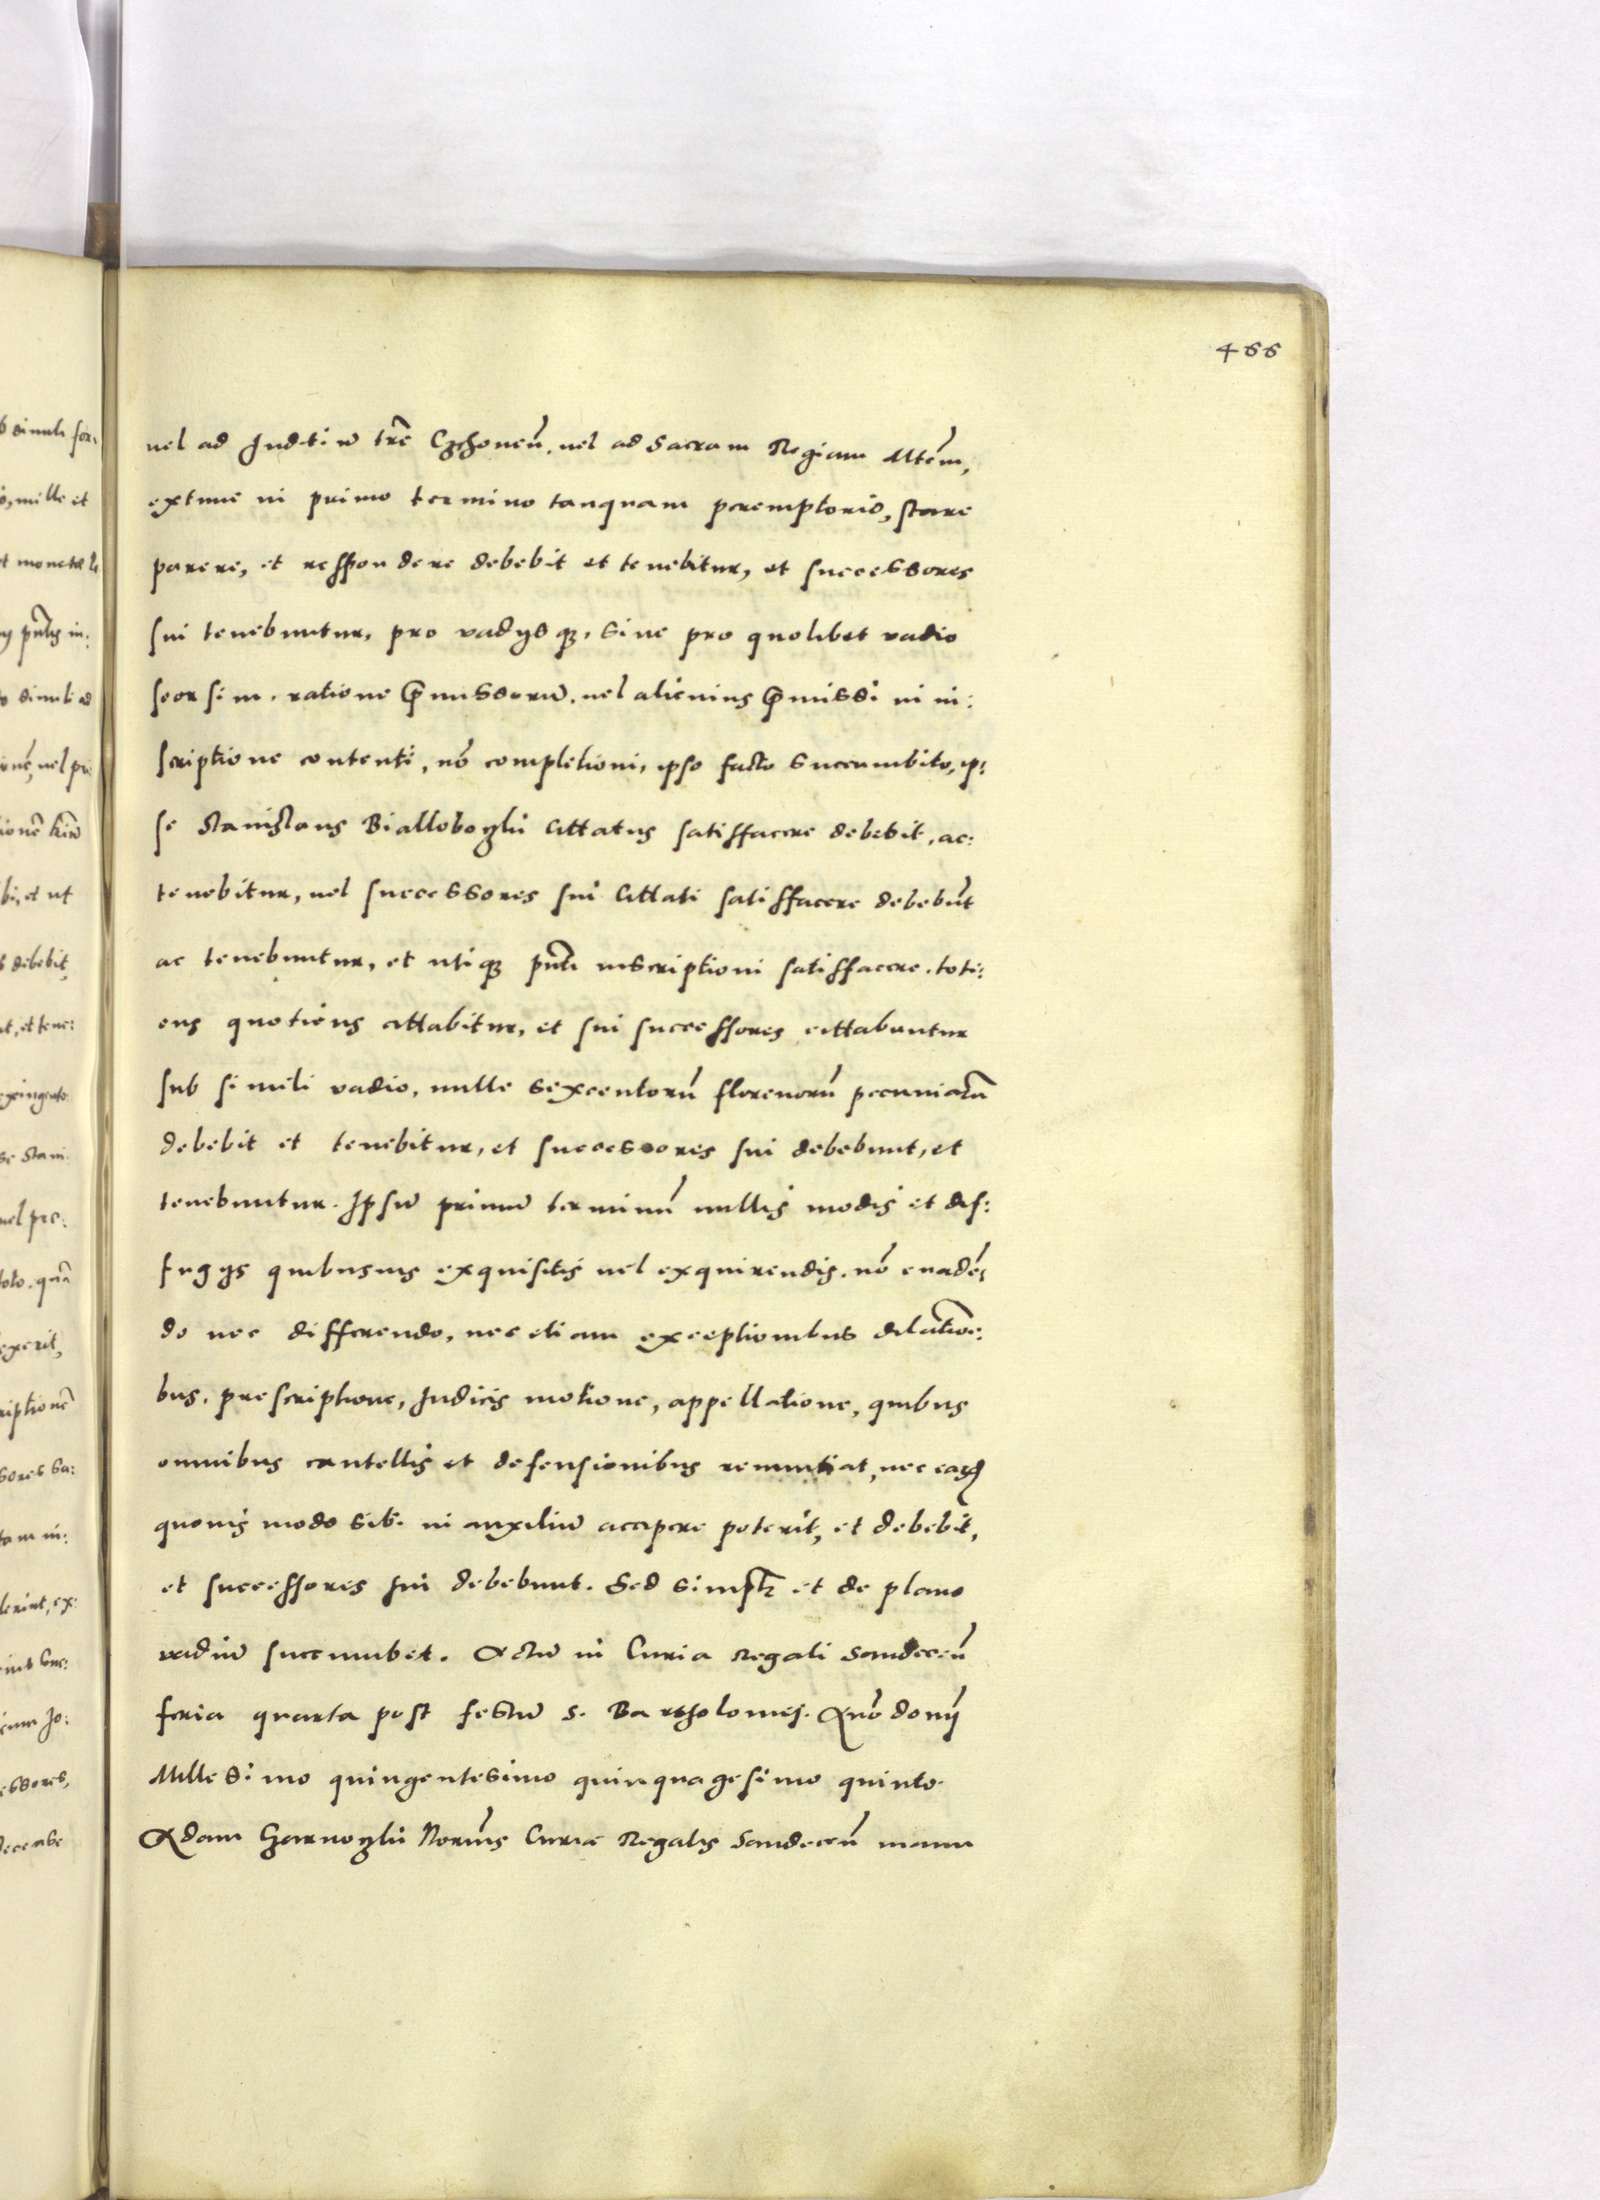 466
vel ad Juditiu̅ tr̅e Czchoven̅. vel ad Sacram Regiam Mtem̅,
extunc in primo termino tanquam peremptorio, stare
parere, et respondere debebit et tenebitur, et successores
sui tenebuntur, pro vadijs qz. sive pro quolibet vadio
seorsim. ratione p̅missoru̅. vel alicuius p̅missi in in:
scriptione contenti, no̅ completioni, ipso facto succumbito, ip:
se Stanislaus Bialloboczki Cittatus satisfacere debebit, ac:
tenebitur, vel successores sui Cittati satisfacere debebu̅t
ac tenebuntur, et uti qz pn̅ti inscriptioni satisfacere. toti:
ens quotiens cittabitur, et sui successores cittabuntur
sub simili vadio, mille sexcentoru̅ florenoru̅ pecuniaru̅
debebit et tenebitur, et successores sui debebunt, et
tenebuntur. Ipsu̅ primu̅ terminu̅ nullis modis et dif:
fugijs quibusvis exquisitis vel exquirendis. no̅ evade̅:
do nec differendo, nec etiam exceptionibus dilatio̅e:
bus. prescriptione, Judicis motione, appellatione, quibus
omnibus cautellis et defensionibus renuntiat, nec eaqz
quovis modo sibi in auxiliu̅ accipere poterit, et debebit,
et successores sui debebunt. Sed simplr̅ et de plano
vadiu̅ succumbet. Actu̅ in Curia Regali Sandecen̅
feria quarta post festu̅ S. Bartholomei. Anno̅ domj̅
Millesimo quingentesimo quinquagesimo quinto.
Adam Garnoczki Norius̅ Curiæ Regalis Sandecen̅ manu